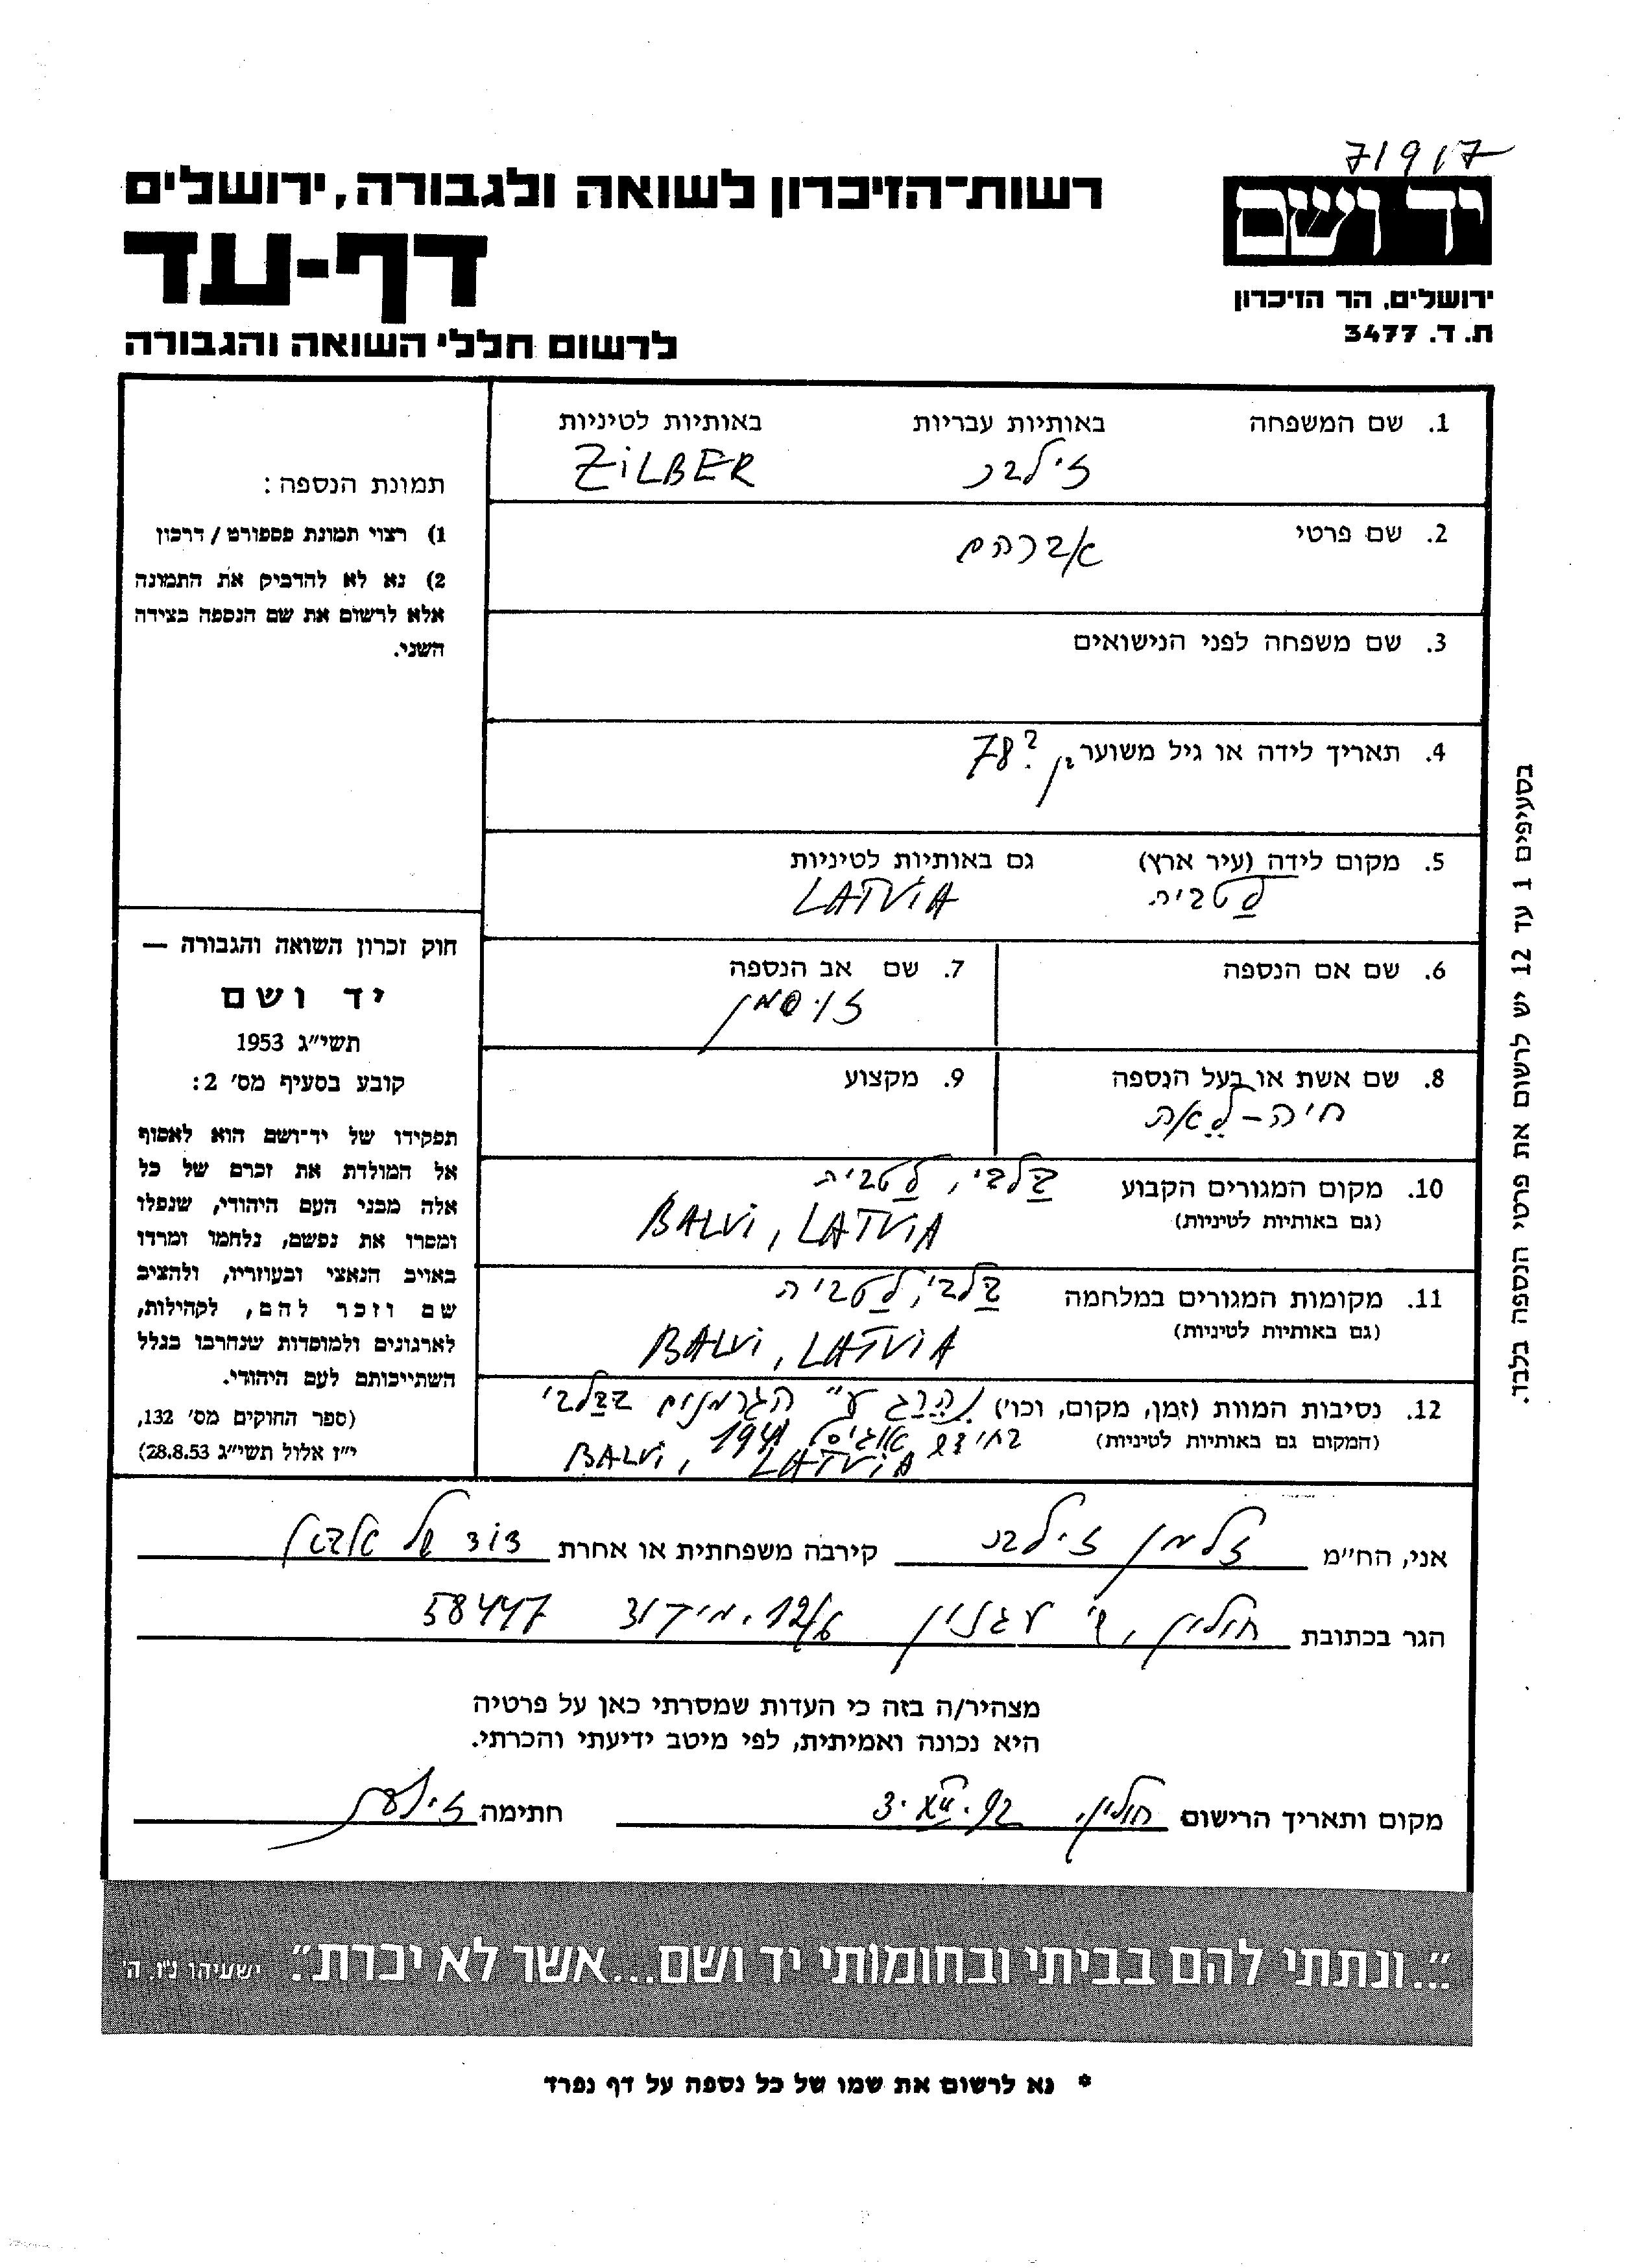 71917
יד ושם
ירושלים, הר הזיכרון
ת. ד. 3477
רשות-הזיכרון לשואה ולגבורה, ירושלים
דף-עד
לרשום חללי השואה והגבורה
1. שם המשפחה באותיות עבריות באותיות לטיניות
זילבר ZiLBER
2. שם פרטי
אברהם
3. שם משפחה לפני הנישואים
4. תאריך לידה או גיל משוער בן 78?
5. מקום לידה (עיר ארץ) גם באותיות לטיניות
לטביה LATViA
6. שם אם הנספה
7. שם אב הנספה
זוסמן
8. שם אשת או בעל הנספה
חיה-לאה
9. מקצוע
10. מקום המגורים הקבוע בלבי, לטביה
(גם באותיות לטיניות) BALVi, LATViA
11. מקומות המגורים במלחמה בלבי, לטביה
(גם באותיות לטיניות) BALVi, LATViA
12. נסיבות המוות (זמן, מקום, וכו') נהרג ע"י הגרמנים בבלבי
(המקום גם באותיות לטיניות) בחודש אוגוסט 1941
BALVi, LATViA
תמונת הנספה:
1) רצוי תמונת פספורט / דרכון
2) נא לא להדביק את התמונה
אלא לרשום את שם הנספה בצידה
השני.
חוק זכרון השואה והגבורה —
יד ושם
תשי"ג 1953
קובע בסעיף מס' 2:
תפקידו של יד-ושם הוא לאסוף
אל המולדת את זכרם של כל
אלה מבני העם היהודי, שנפלו
ומסרו את נפשם, נלחמו ומרדו
באויב הנאצי ובעוזריו, ולהציב
שם וזכר להם, לקהילות,
לארגונים ולמוסדות שנחרבו בגלל
השתייכותם לעם היהודי.
(ספר החוקים מס' 132,
י"ז אלול תשי"ג 28.8.53)
בסעיפים 1 עד 12 יש לרשום את פרטי הנספה בלבד.
אני, הח"מ זלמן זילבר קירבה משפחתית או אחרת דוד של
הגר בכתובת חולון, עגנון 12/6 מיקוד 58447
מצהיר/ה בזה כי העדות שמסרתי כאן על פרטיה
היא נכונה ואמיתית, לפי מיטב ידיעתי והכרתי.
מקום ותאריך הרישום חולון, 3. .92 חתימה
"...ונתתי להם בביתי ובחומותי יד ושם...אשר לא יכרת". ישעיהו נ"ו, ה'
* נא לרשום את שמו של כל נספה על דף נפרד